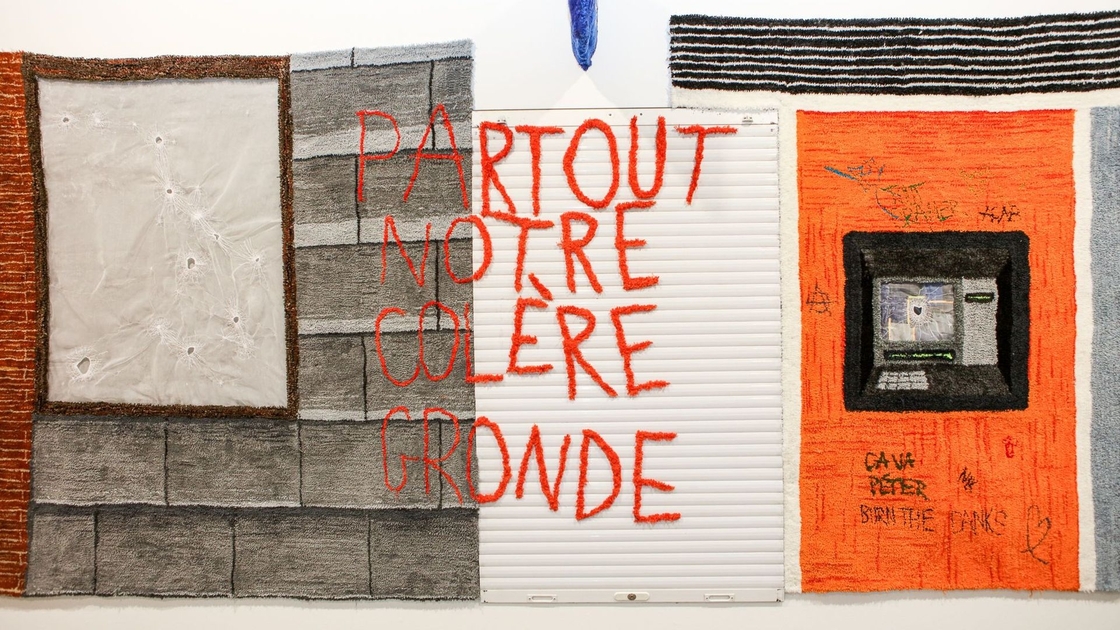 PARTOUT
NOTRE
COLÈRE
GRONDE
CAVA
PÉTER
BURN THE BANKS